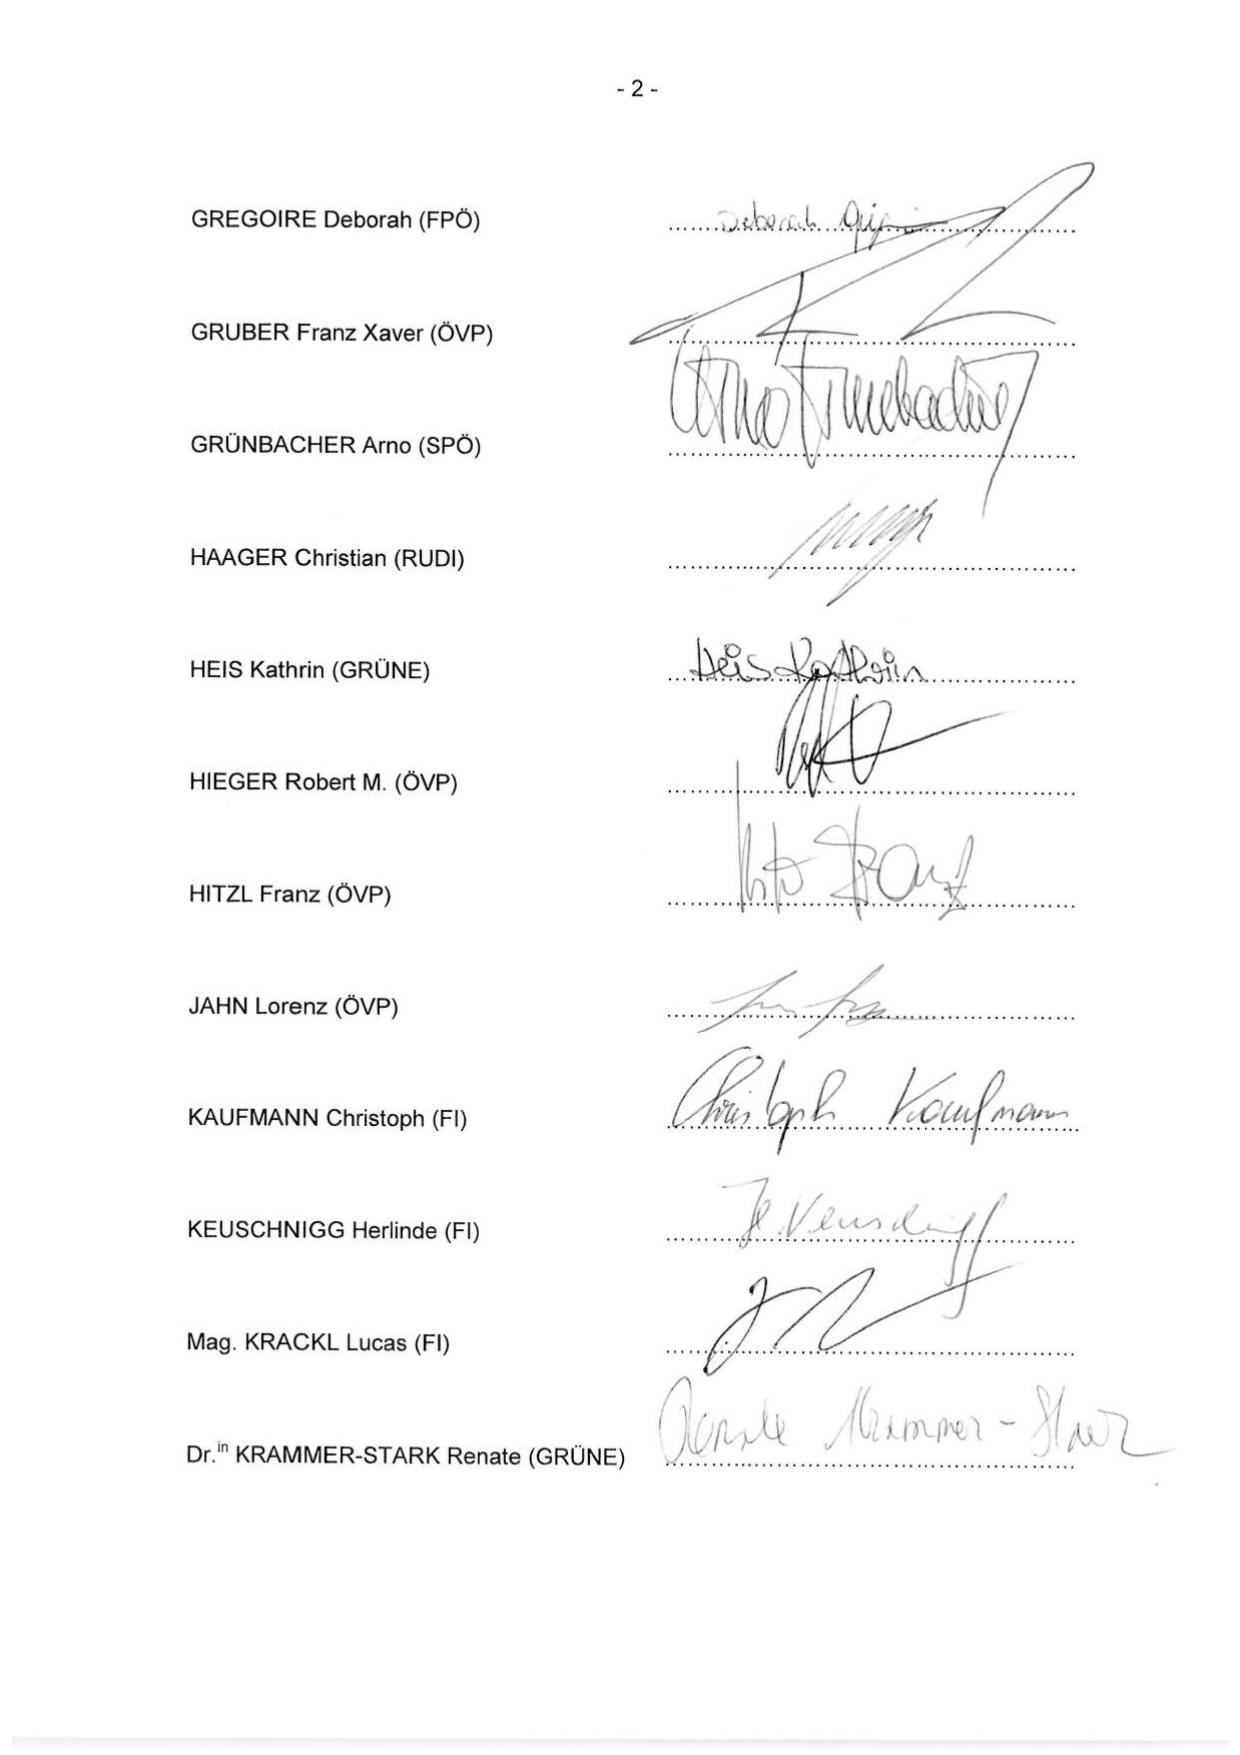 - 2 -
GREGOIRE Deborah (FPÖ) Deborah
GRUBER Franz Xaver (ÖVP)
GRÜNBACHER Arno (SPÖ) Arno Grünbacher
HAAGER Christian (RUDI)
HEIS Kathrin (GRÜNE) Heis Kathrin
HIEGER Robert M. (ÖVP)
HITZL Franz (ÖVP) Franz
JAHN Lorenz (ÖVP)
KAUFMANN Christoph (FI) Christoph Kaufmann
KEUSCHNIGG Herlinde (FI) H. Keuschnigg
Mag. KRACKL Lucas (FI)
Dr.in KRAMMER-STARK Renate (GRÜNE) Renate Krammer-Stark